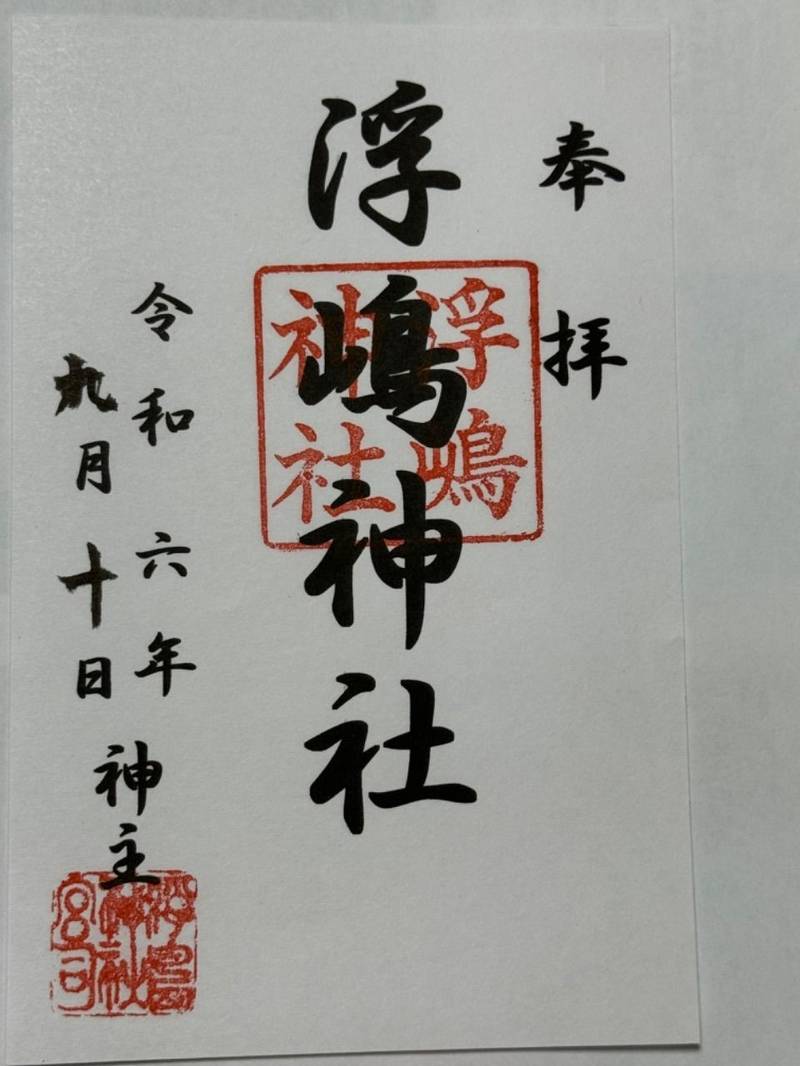 奉拝
浮嶋神社
浮嶋
神社
令和六年
九月十日
神主
浮嶋
神社
宮司